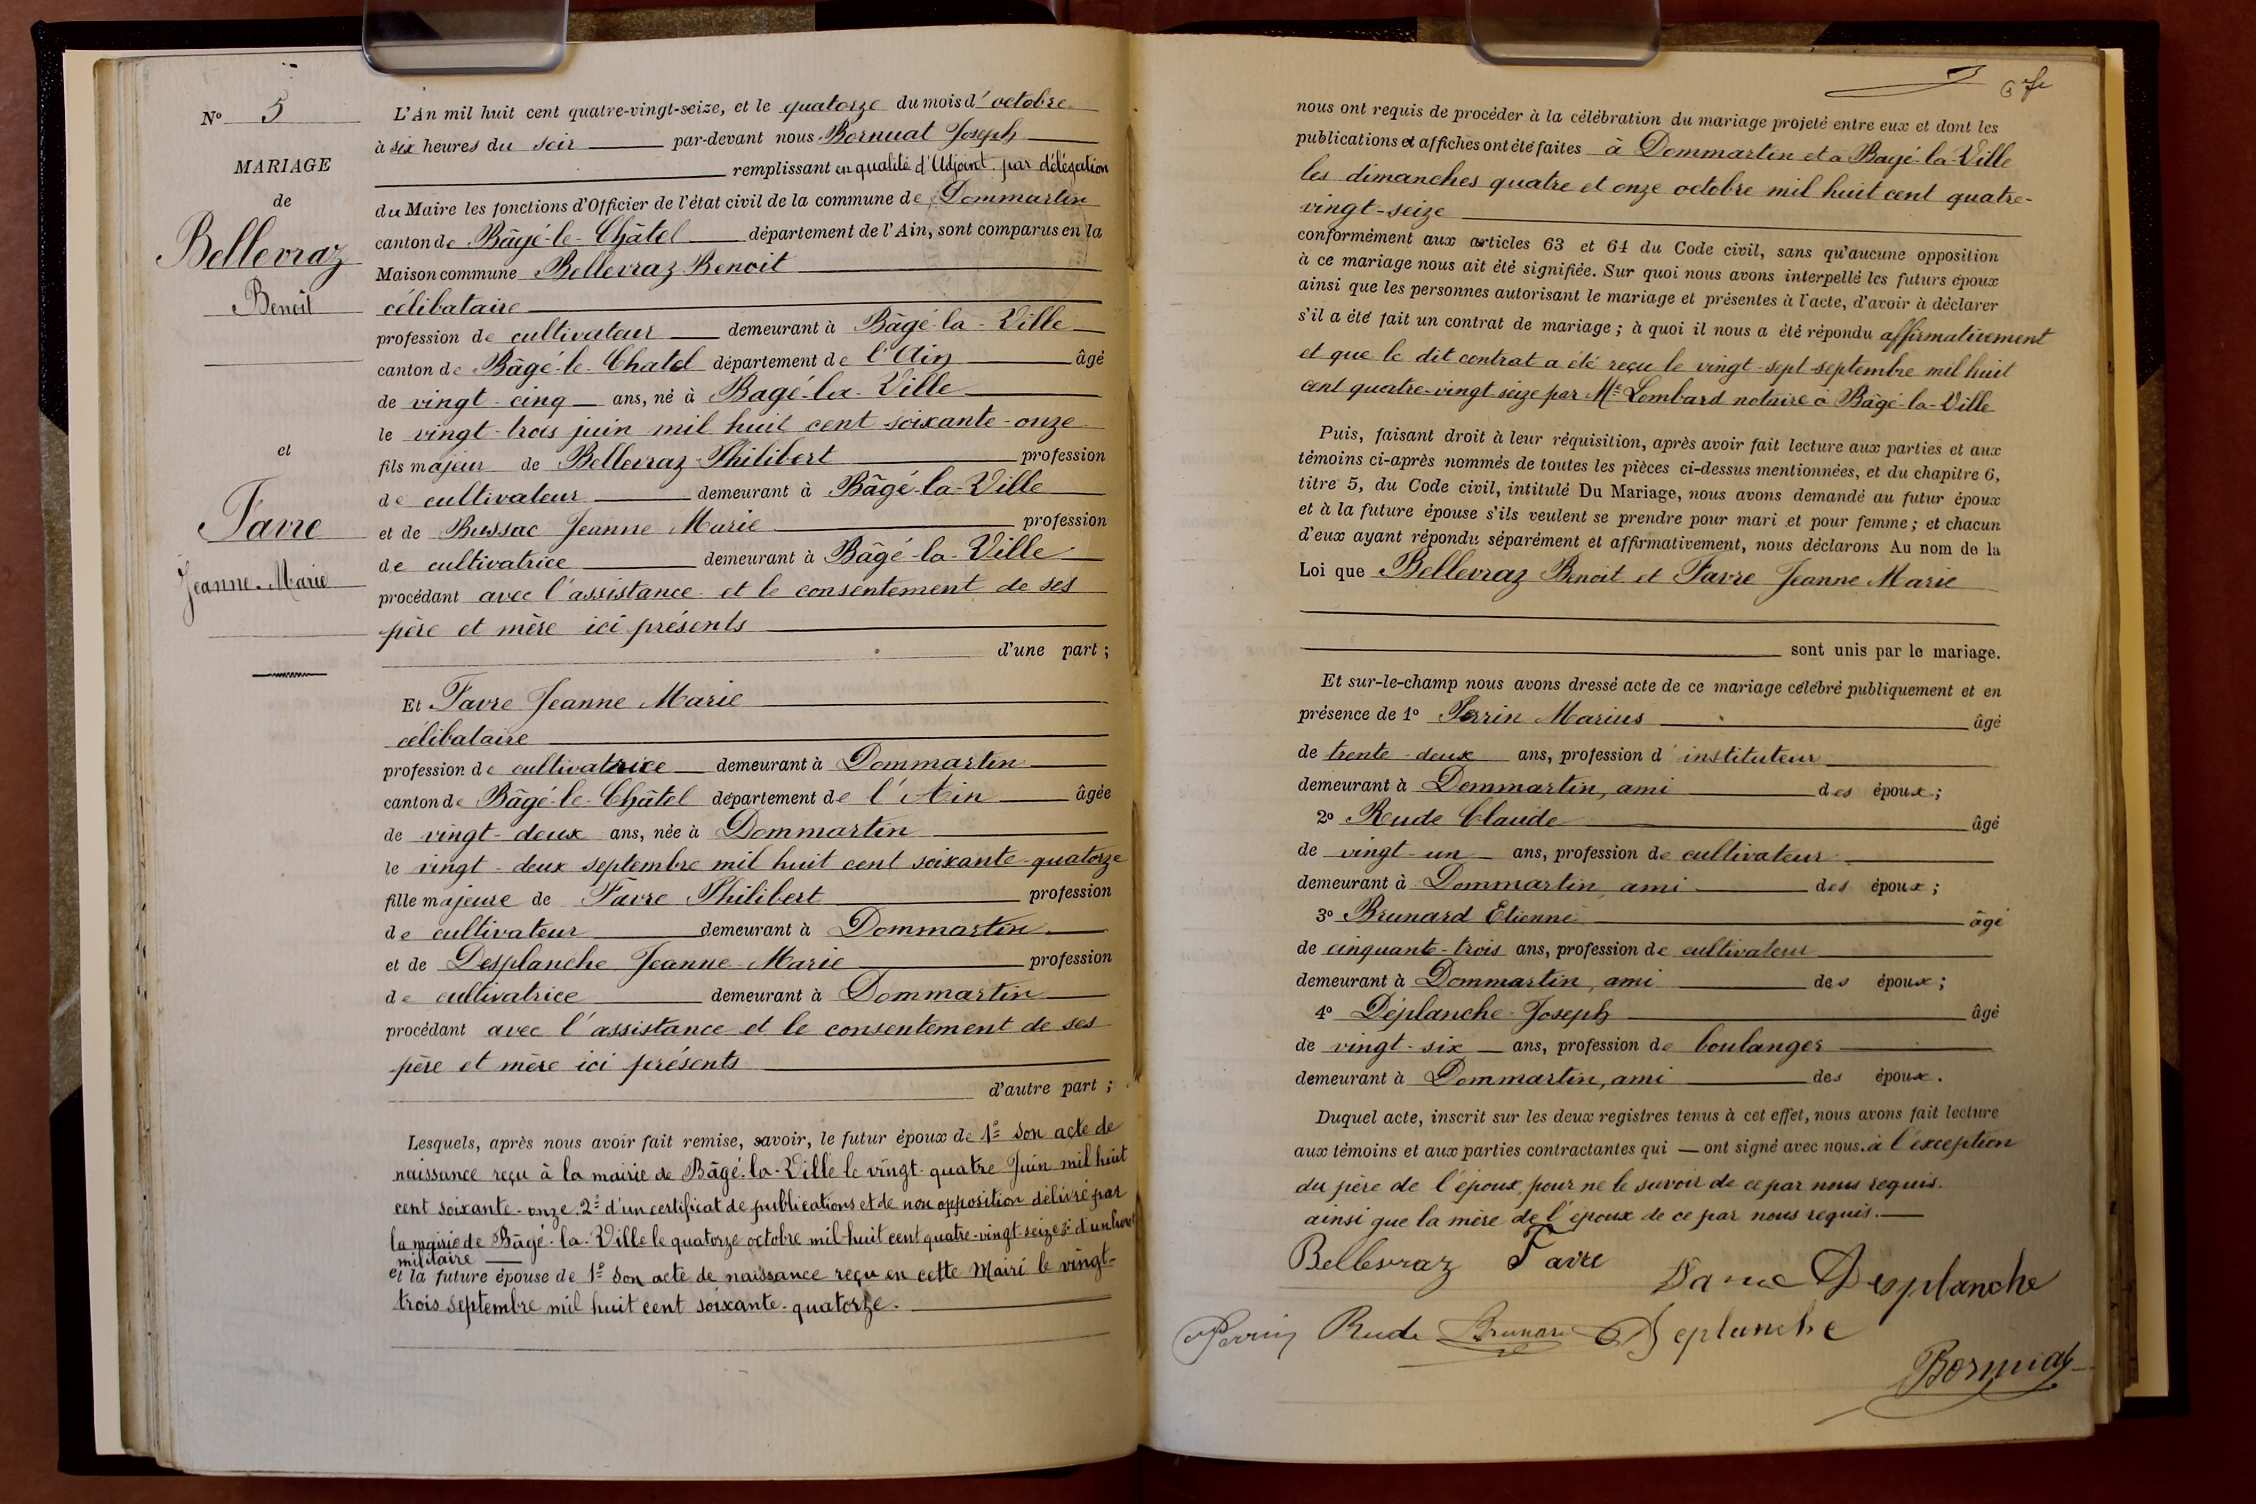 N° 5
MARIAGE
de
Bellevraz
Benoit
et
Favre
Jeanne-Marie
L'An mil huit cent quatre-vingt-seize, et le quatorze du mois d'octobre
à six heures du soir par-devant nous Bornuat Joseph
remplissant en qualité d'Adjoint par délégation
du Maire les fonctions d'Officier de l'état civil de la commune de Dommartin
canton de Bâgé-le-Châtel département de l'Ain, sont comparus en la
Maison commune Bellevraz Benoit
célibataire
profession de cultivateur demeurant à Bâgé-la-Ville
canton de Bâgé-le-Chatel département de l'Ain âgé
de vingt-cinq ans, né à Bagé-la-Ville
le vingt-trois juin mil huit cent soixante-onze
fils majeur de Bellevraz Philibert profession
de cultivateur demeurant à Bâgé-la-Ville
et de Bussac Jeanne Marie profession
de cultivatrice demeurant à Bâgé-la-Ville
procédant avec l'assistance et le consentement de ses
père et mère ici présents
d'une part ;
Et Favre Jeanne Marie
célibataire
profession de cultivatrice demeurant à Dommartin
canton de Bâgé-le-Châtel département de l'Ain âgée
de vingt-deux ans, née à Dommartin
le vingt-deux septembre mil huit cent soixante-quatorze
fille majeure de Favre Philibert profession
de cultivateur demeurant à Dommartin
et de Desplanche Jeanne-Marie profession
de cultivatrice demeurant à Dommartin
procédant avec l'assistance et le consentement de ses
père et mère ici présents
d'autre part ;
Lesquels, après nous avoir fait remise, savoir, le futur époux de 1° son acte de
naissance reçu à la mairie de Bâgé-la-Ville le vingt-quatre Juin mil huit
cent soixante-onze, 2° d'un certificat de publications et de non opposition délivré par
la mairie de Bâgé-la-Ville le quatorze octobre mil huit cent quatre-vingt-seize 3° d'un livret
militaire
et la future épouse de 1° son acte de naissance reçu en cette Mairi le vingt-
trois septembre mil huit cent soixante-quatorze.
nous ont requis de procéder à la célébration du mariage projeté entre eux et dont les
publications et affiches ont été faites à Dommartin et à Bagé-la-Ville
les dimanches quatre et onze octobre mil huit cent quatre-
vingt-seize
conformément aux articles 63 et 64 du Code civil, sans qu'aucune opposition
à ce mariage nous ait été signifiée. Sur quoi nous avons interpellé les futurs époux
ainsi que les personnes autorisant le mariage et présentes à l'acte, d'avoir à déclarer
s'il a été fait un contrat de mariage ; à quoi il nous a été répondu affirmativement
et que le dit contrat a été reçu le vingt-sept septembre mil huit
cent quatre-vingt-seize par Me Lombard notaire à Bâgé-la-Ville
Puis, faisant droit à leur réquisition, après avoir fait lecture aux parties et aux
témoins ci-après nommés de toutes les pièces ci-dessus mentionnées, et du chapitre 6,
titre 5, du Code civil, intitulé Du Mariage, nous avons demandé au futur époux
et à la future épouse s'ils veulent se prendre pour mari et pour femme ; et chacun
d'eux ayant répondu séparément et affirmativement, nous déclarons Au nom de la
Loi que Bellevraz Benoit et Favre Jeanne Marie
sont unis par le mariage.
Et sur-le-champ nous avons dressé acte de ce mariage célébré publiquement et en
présence de 1° Perrin Marius âgé
de trente-deux ans, profession d'instituteur
demeurant à Dommartin, ami des époux ;
2° Rude Claude âgé
de vingt-un ans, profession de cultivateur
demeurant à Dommartin ami des époux ;
3° Brunard Etienne âgé
de cinquante-trois ans, profession de cultivateur
demeurant à Dommartin, ami des époux ;
4° Déplanche Joseph âgé
de vingt-six ans, profession de boulanger
demeurant à Dommartin, ami des époux.
Duquel acte, inscrit sur les deux registres tenus à cet effet, nous avons fait lecture
aux témoins et aux parties contractantes qui ont signé avec nous. à l'exception
du père de l'époux, pour ne le savoir de ce par nous requis.
ainsi que la mère de l'époux de ce par nous requis.
Bellevraz Favre
Desplanche
Perrin Rude Brunard Deplanche
Bornuat